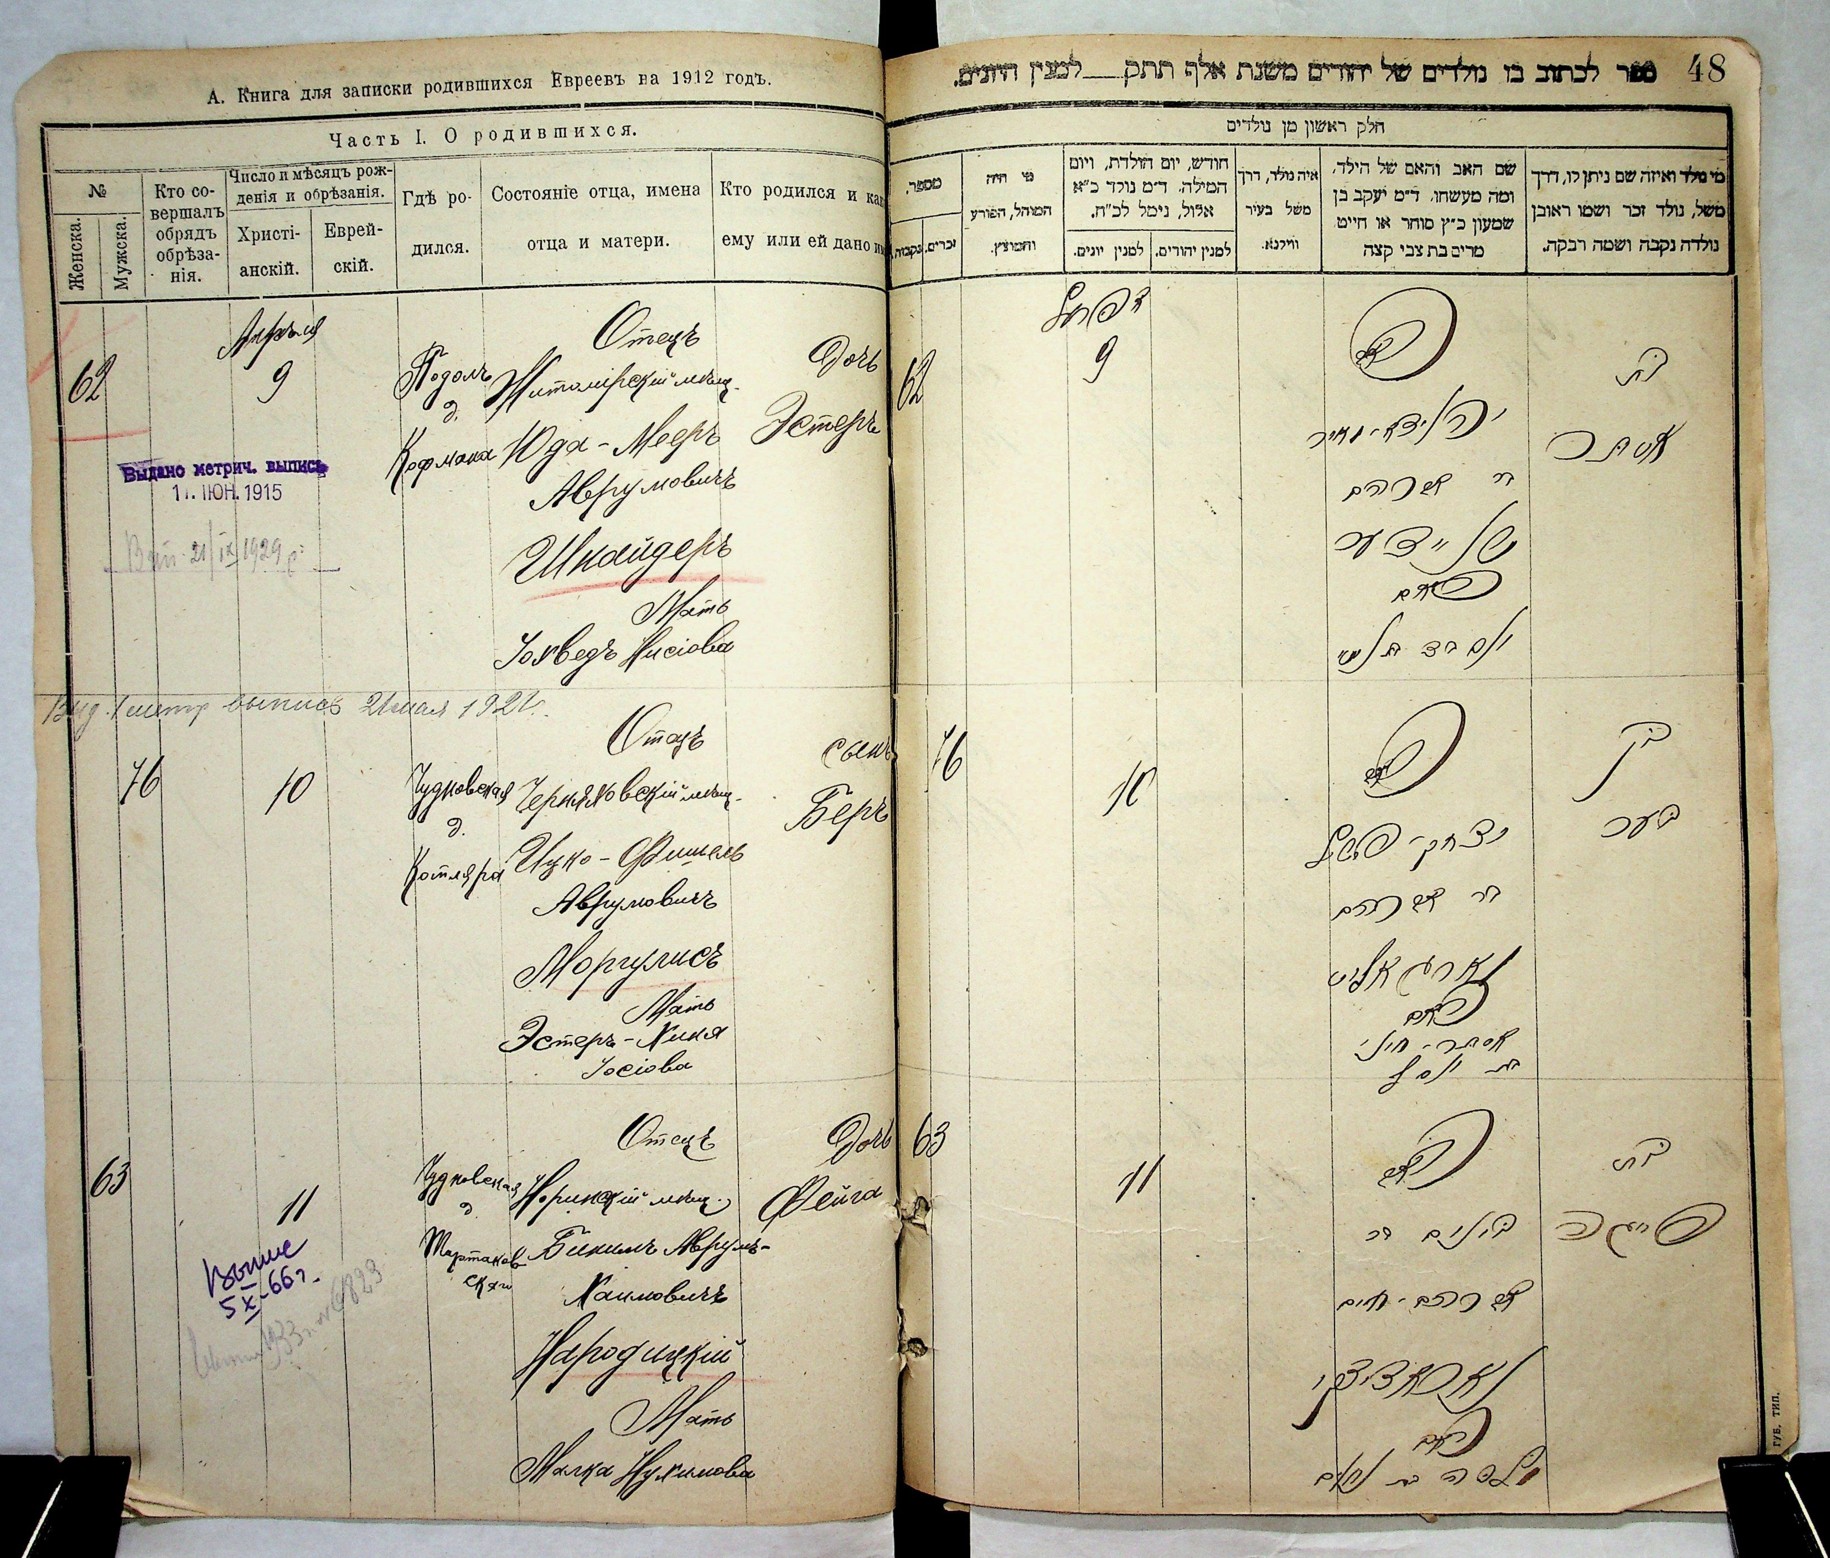 А. Книга для записки родившихся Евреевъ на 1912 годъ.
Часть I. О родившихся.
№
Женска.
Мужска.
Кто со-
вершалъ
обрядъ
обрѣза-
нія.
Число и мѣсяцъ рож-
денія и обрѣзанія.
Христі-
анскій.
Еврей-
скій.
Гдѣ ро-
дился.
Состояніе отца, имена
отца и матери.
Кто родился и как
ему или ей дано и
62
Апрѣля
9
Подолъ
д.
Кофмана
Отецъ
Житомірскій мѣщ.
Юда-Мееръ
Аврумовичъ
Шнайдеръ
Мать
Іохведъ Нисіова
Дочь
Эстеръ
Выдано метрич. выпись
1 . ІЮН. 1915
21/IX 1929 г.
Выд. 1 метр выпись 21 мая 1921.
76
10
Чудновская
д.
Котляра
Отецъ
Черняховскій мѣщ.
Ицко-Фишель
Аврумовичъ
Моргулисъ
Мать
Эстеръ-Хиня
Іосіова
сынъ
Беръ
63
11
Чудновская
д.
Отецъ
Норинскій мѣщ.
Бинимъ Аврумъ-
Хаимовичъ
Народицкій
Мать
Малка Нухимова
Дочь
Фейга
5 X-66 г.
48
ספר לכתוב בו נולדים של יהודים משנת אלף תתק למנין היונים.
חלק ראשון מן נולדים
מי נולד ואיזה שם ניתן לו, דרך
משל, נולד זכר ושמו ראובן
נולדה נקבה ושמה רבקה.
שם האב והאם של הילד,
ומה מעשהו, ד״מ יעקב בן
שמעון כ״ץ סוחר או חייט
מרים בת צבי קצה
איה נולד, דרך
משל בעיר
ווילנא.
חודש, יום הולדת, ויום
המילה, ד״מ נולד כ״א
אלול, נימל לכ״ח.
למנין יהודים.
למנין יונים.
מי היה
המוהל, הפורע
והמוצץ.
מספר,
זכרים,
נקבות,
62
אפריל
9
האב
יודא-מאיר
בר אברהם
שניידער
האם
בת
אסתר
76
10
האב
יצחק-פישל
בר אברהם
מארגאליס
האם
אסתר-חיני
בת יוסף
בן
בער
63
11
האב
בינים בר
אברהם-חיים
נאראדיצקי
האם
מלכה בת נחום
בת
פייגה
ГУБ. ТИП.